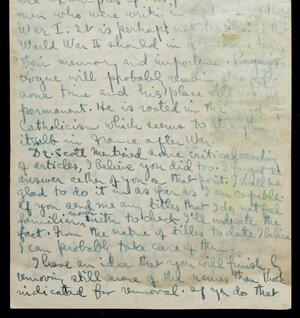 men who were writing
War I. It is perhaps not
World War II should in
their memory and importance. Peguy's
vogue will probably remain
some time and his place will
permanent. He is rooted in the
Catholicism which seems to strengthen
itself in France after War.
Dr. Scott mentioned some critical reading
of articles, I believe you did too. I
answer either of you on that point. I shall be
glad to do it in as far as I am capable.
If you send me any titles that I do not feel
familiar enough with to check I'll indicate the
fact. From the nature of titles to date I believe
I can probably take care of them.
I have an idea that you will finish by
removing still more of the names than those
indicated for removal. If you do that